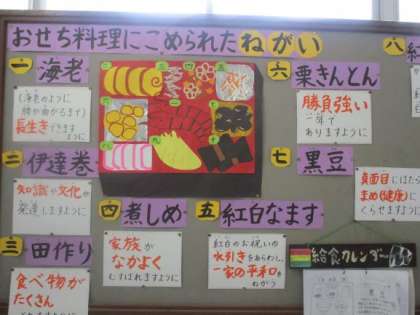 おせち料理にこめられたねがい
一 海老
(海老のように
腰が曲がるまで)
長生きできます
ように
二 伊達巻
知識や文化が
発達しますように
三 田作り
食べ物が
たくさん
四 煮しめ
家族が
なかよく
むすばれますように
五 紅白なます
紅白のお祝いの
水引きをあらわし、
一家の平和を
ねがう
六 栗きんとん
勝負強い
一年で
ありますように
七 黒豆
真面目にはたら
まめ(健康)に
くらせますように
八 紅
給食カレンダー